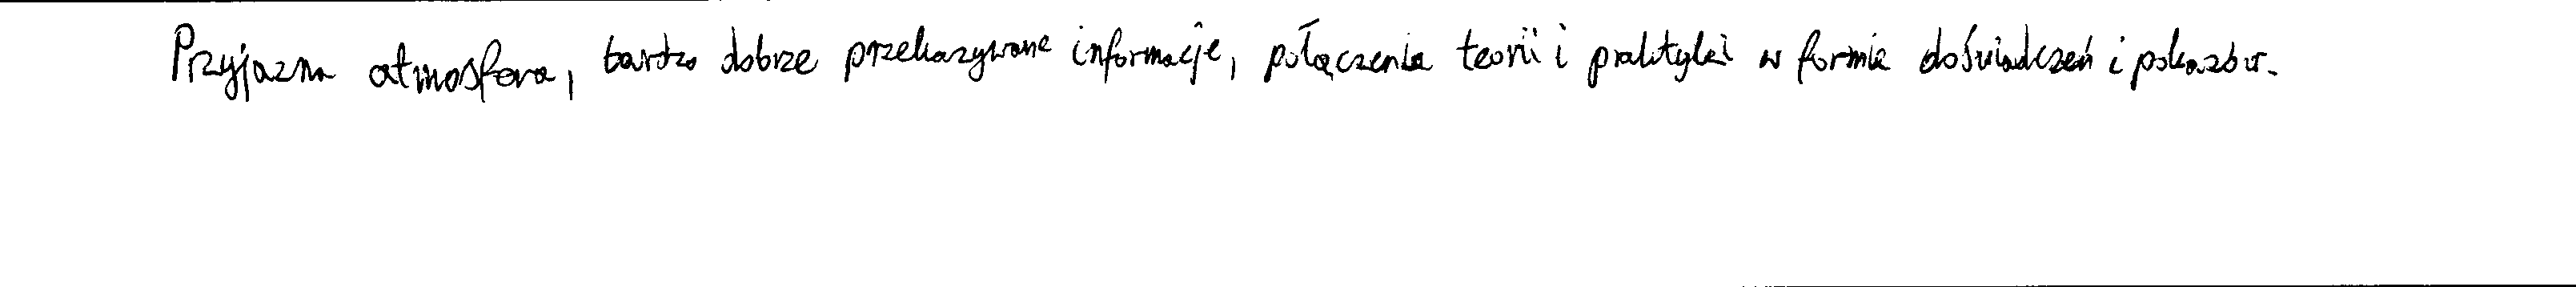 Przyjazna atmosfera, bardzo dobrze przekazywane informacje, połączenie teorii i praktyki w formie doświadczeń i pokazów.